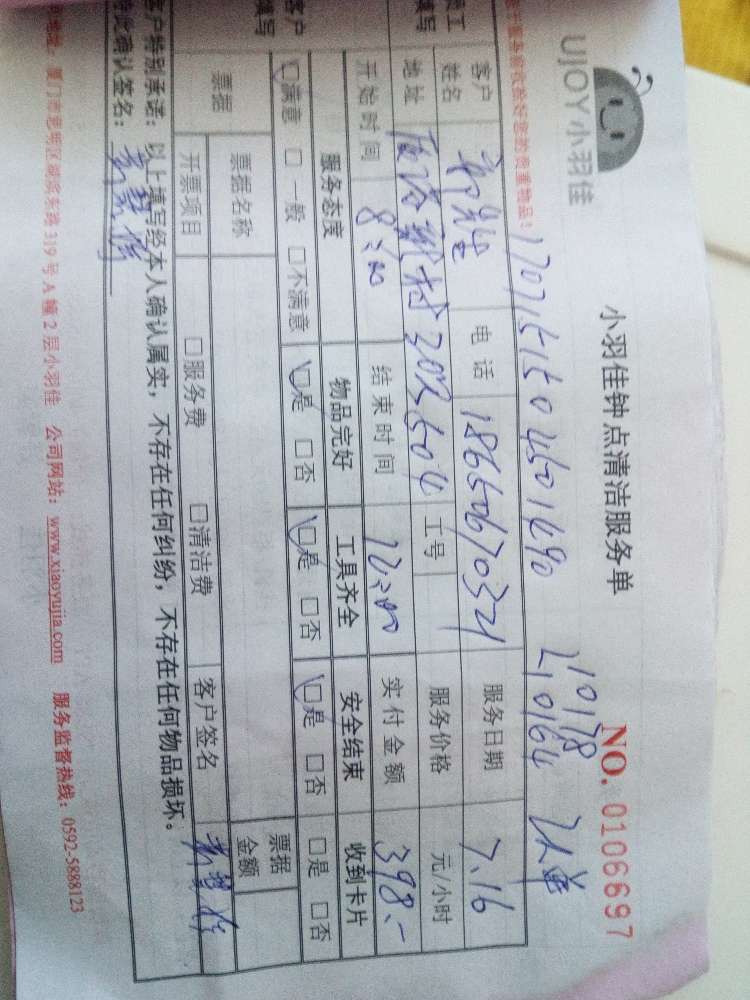 UJOY小羽佳
小羽佳钟点清洁服务单
NO. 0106697
贵重物品！
1707151504501690
L10178
L10164
客户姓名
电话 18650670321
服务日期 7.16
地址
202 504
工号
服务价格 元/小时
开始时间 8:00
结束时间 12:00
实付金额 398.-
客户填写
服务态度 物品完好 工具齐全 安全结束 收到卡片
□满意 □一般 □不满意 □是 □否 □是 □否 □是 □否 □是 □否
票据
票据名称
票据金额
开票项目 □服务费 □清洁费 客户签名
客户特别承诺：以上填写经本人确认属实，不存在任何纠纷，不存在任何物品损坏。
特此确认签名：
厦门市思明区湖滨东路319号A幢2层小羽佳 公司网站：www.xiaoyujia.com 服务监督热线：0592-5888123